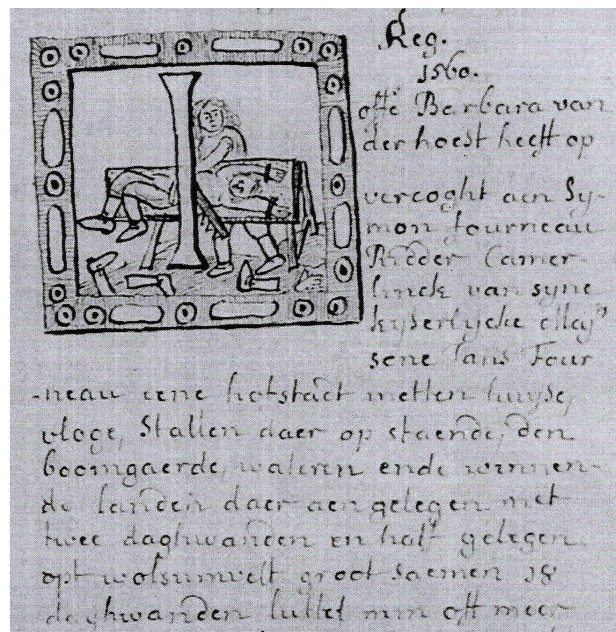 Reg.
1560.
offe Barbara van
der hoest heeft op
vercoght aen Sy-
mon fourneau
Ridder Camer-
linck van syne
keyserlycke Maj
sone Jans Four
-neau eene hofstadt metten huyse,
vloge, Stallen daer op staende, den
boomgaerde, wateren ende winnen-
de landen daer aen gelegen met
twee daghwanden en half gelegen
opt wolsumvelt groot saemen 18
daghwanden luttel min oft meer